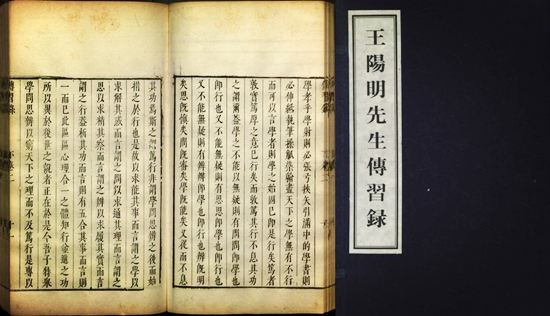 王陽明先生傳習録
學孝乎學射則必張弓挾矢引滿中的學書則
必伸紙執筆操觚染翰盡天下之學無有不行
而可以言學者則學之始固已即是行矣篤者
敦實篤厚之意已行矣而敦篤其行不息其功
之謂爾蓋學之不能以無疑則有問問即學也
即行也又不能無疑則有思思即學也即行也
又不能無疑則有辨辨即學也即行也辨既明
矣思既慎矣問既審矣學既能矣又從而不息
其功焉斯之謂篤行非謂學問思辨之後而始
措之於行也是故以求能其事而言謂之學以
求解其惑而言謂之問以求通其理而言謂之
思以求精其察而言謂之辨以求履其實而言
謂之行蓋析其功而言則有五合其事而言則
一而已此區區心理合一之體知行並進之功
所以異於後世之說者正在於是今吾子特舉
學問思辨以窮天下之理而不及篤行是專以
傳習錄